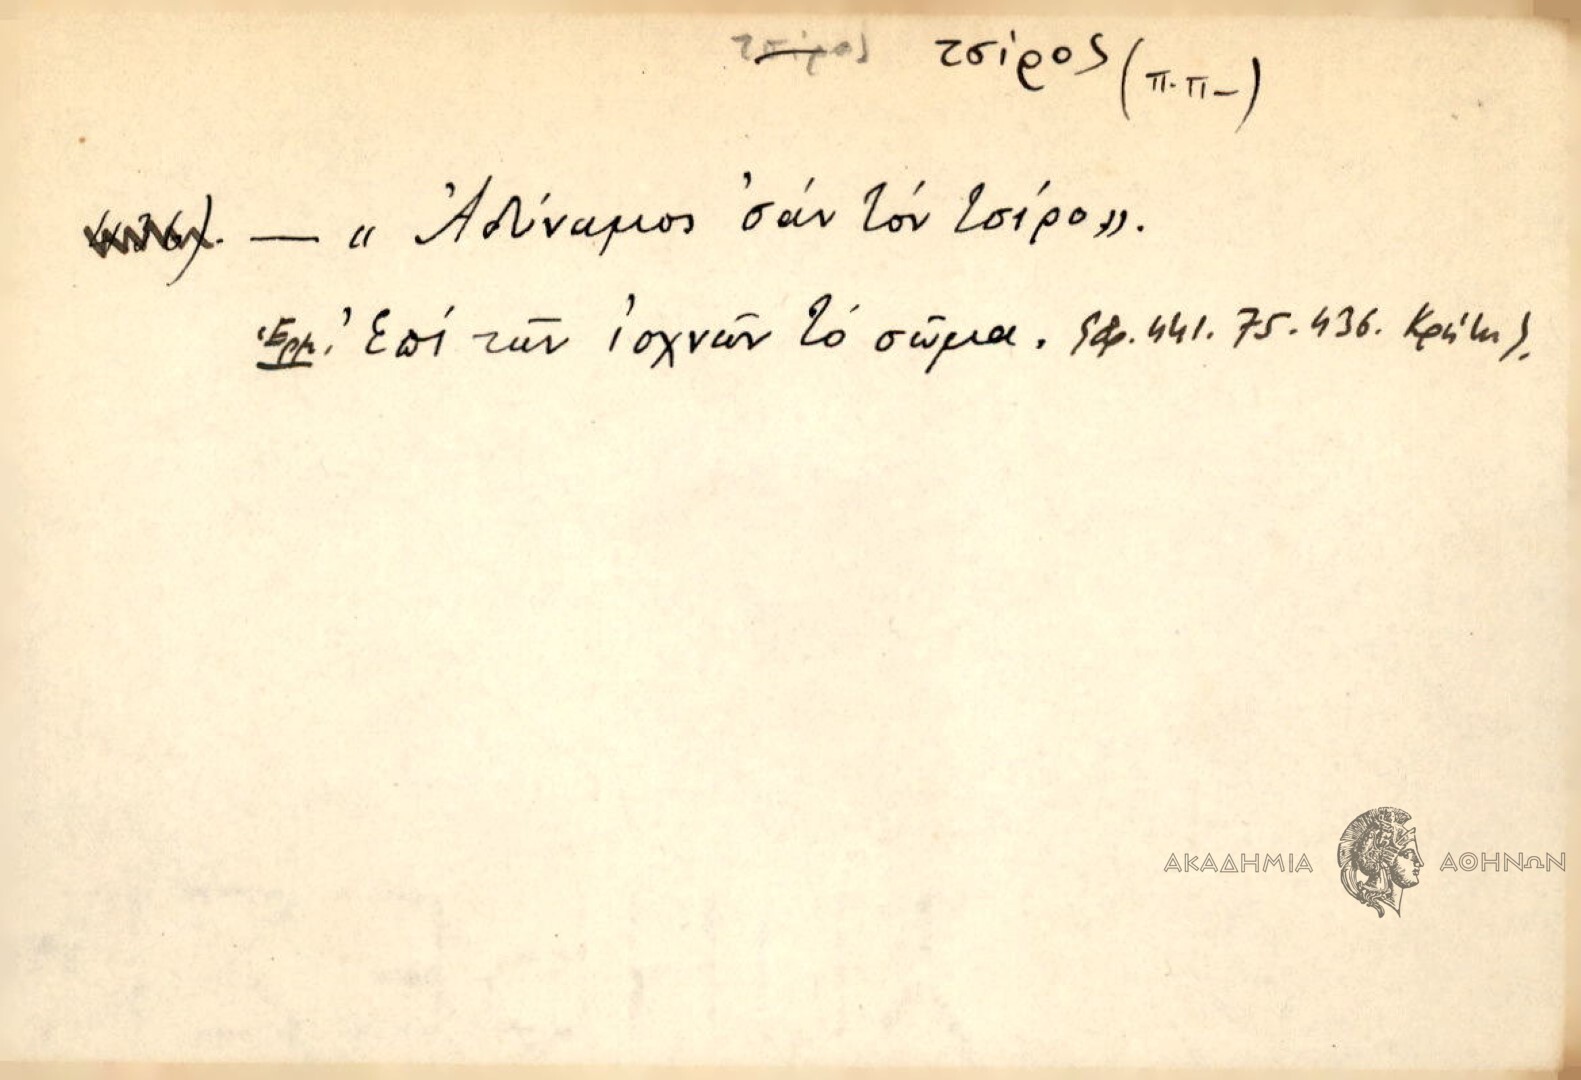 τσίρος τσίρος (π.π-)
436). — « Ἀδύναμος 'σάν τόν τσίρο».
Ἑρμ. Ἐπί τῶν ἰσχνῶν τό σῶμα. (φ. 441. 75. 436. Κρήτη).
ΑΚΑΔΗΜΙΑ ΑΘΗΝΩΝ